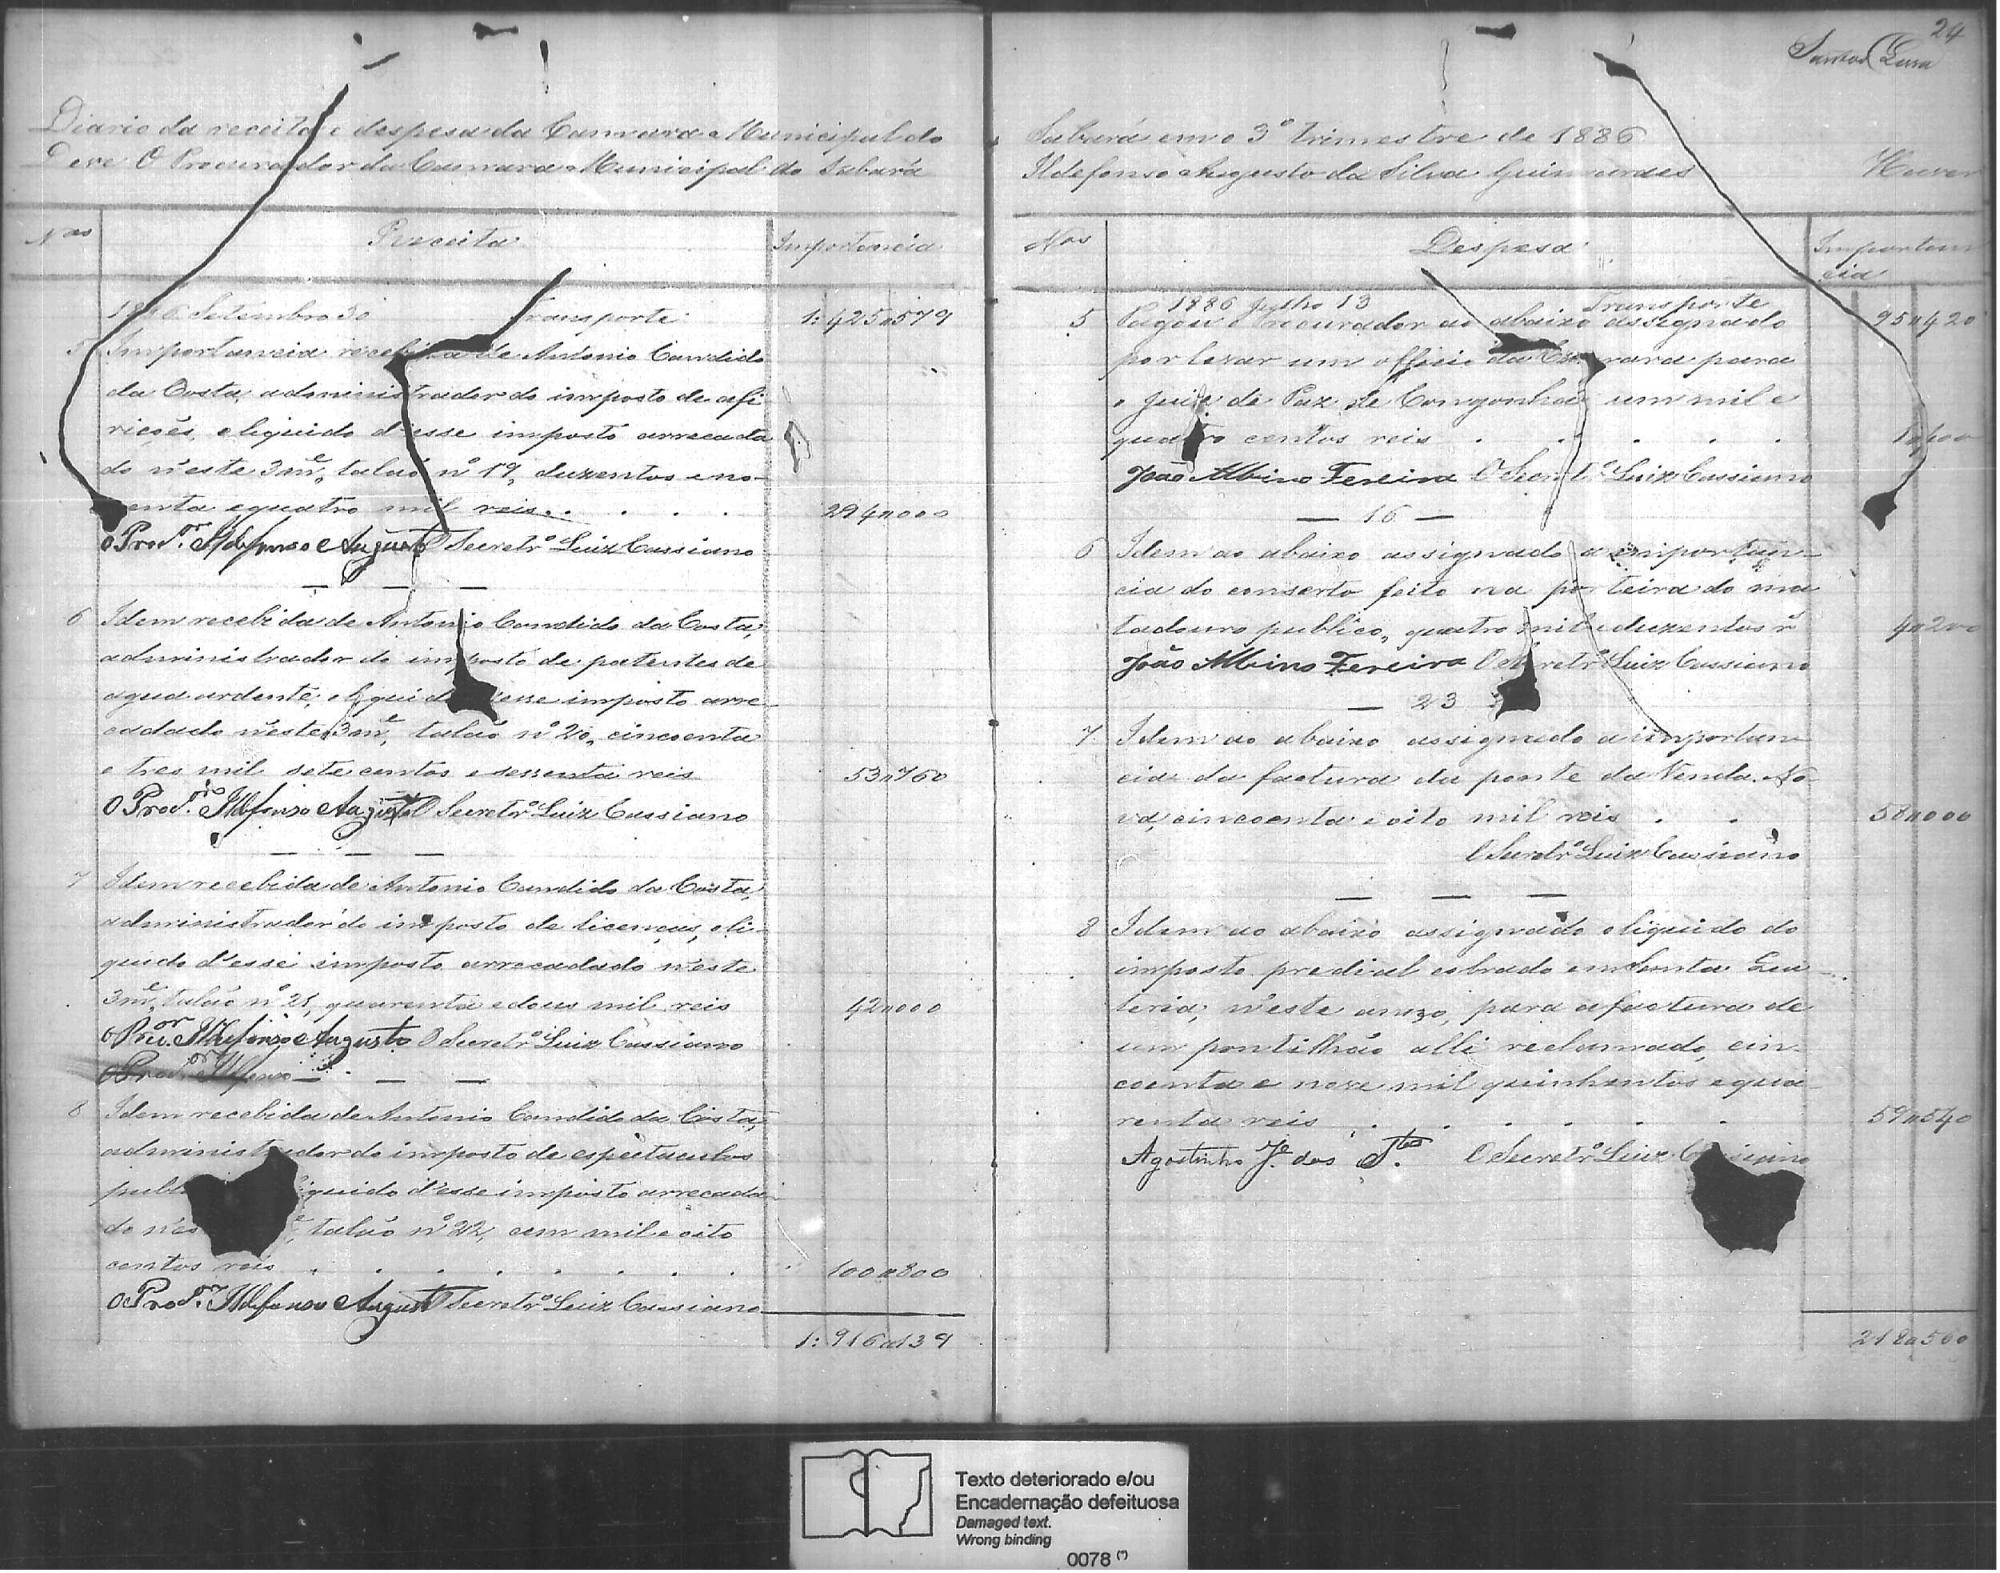 24
Diario da receita e despesa da Camara Municipal do
Deve O Procurador da Camara Municipal do Sabará
Nos Receita Importancia
1886 Setembro 30 Transporte 1:425"579
5 Importancia recebida de Antonio Candido
da Costa, administrador do imposto de afi
rições, o liquido d'esse imposto arrecada
do n'este 3me, talão nº 19, duzentos e no-
venta e quatro mil reis. . . . . 294"000
O Pror. Ildefonso Augusto O Secretrº Luiz Cassiano
— — —
6 Idem recebida de Antonio Candido da Costa,
administrador do imposto de patentes de
agua ardente, o liquido d'esse imposto arre-
cadado n'este 3me, talão nº 20, cincoenta
e tres mil sete centos e sessenta reis 53"760
O Pror. Ildefonso Augusto O Secretrº Luiz Cassiano
— — —
7 Idem recebida de Antonio Candido da Costa,
administrador do imposto de licenças, o li-
quido d'esse imposto arrecadado n'este
3me, talão nº 21, quarenta e dous mil reis 42"000
O Pror. Ildefonso Augusto O Secretrº Luiz Cassiano
O Pror. Ildefonso — — —
8 Idem recebida de Antonio Candido da Costa,
administrador do imposto de espectaculos
publ liquido d'esse imposto arrecada
do n'es talão nº 22, cem mil e oito
centos reis . . . . . . . . 100"800
O Pror. Ildefonso Augusto Secretrº Luiz Cassiano
1:916"139
Sabará em o 3º trimestre de 1886
Ildefonso Augusto da Silva Guimarães Haver
Nos Despesa Importan
cia
1886 Julho 13 Transporte
5 Pagou o Procurador ao abaixo assignado 95"420
por levar um officio da Camara para
o juiz de Paz de Congonhas um mil e
quatro centos reis . . . . . 1"400
João Albino Fereira O Secretrº Luiz Cassiano
— 16 —
6 Idem ao abaixo assignado a importan-
cia do conserto feito na porteira do ma
tadouro publico, quatro mil e duzentos rs 4"200
João Albino Fereira O Secretrº Luiz Cassiano
— 23 —
7 Idem ao abaixo assignado a importan
cia da factura da ponte da Venda No
va, cincoenta e oito mil reis . . 58"000
O Secretrº Luiz Cassiano
— — —
8 Idem ao abaixo assignado o liquido do
imposto predial cobrado em Santa Qui
teria, n'este anno, para a factura de
um pontilhão alli reclamado, cin-
coenta e nove mil quinhentos e qua
renta reis . . . . . . 59"540
Agostinho Je. dos Stos O Secretrº Luiz Cassiano
218"560
Texto deteriorado e/ou
Encadernação defeituosa
Damaged text.
Wrong binding
0078 (*)